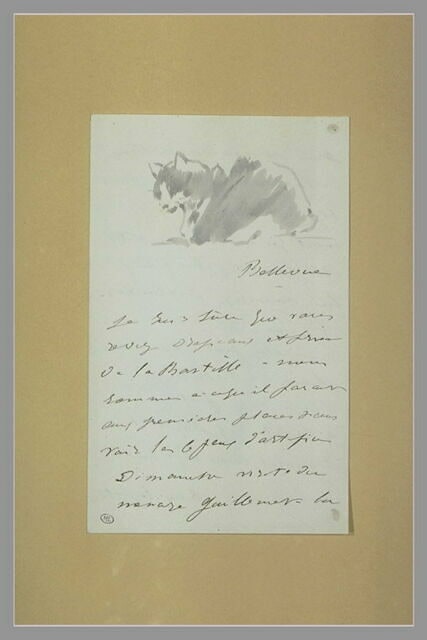 Bellevue
Je suis sûre que vous
avez drapeaux et prise
de la Bastille - nous
sommes à ce qu'il paraît
aux premières places pour
voir les feux d'artifice
Dimanche visite du
menage Guillemet. La